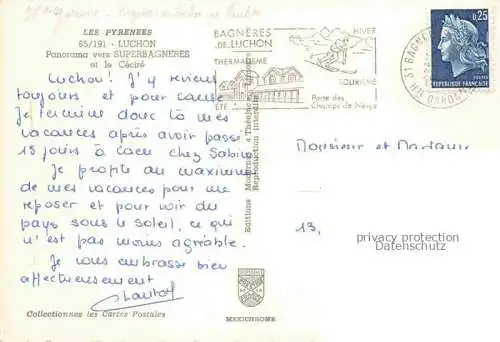 LES PYRENEES
65/191 - LUCHON
Panorama vers SUPERBAGNERES
et le Céciré
Luchon! J'y revient
toujours et pour cause
Je termine donc là mes
vacances après avoir passé
15 jours à Caen chez Sabine
Je profite au maximum
de mes vacances pour me
reposer et pour voir du
pays sous le soleil, ce qui
n'est pas moins agréable.
Je vous embrasse bien
affectueusement
Collectionnez les Cartes Postales
MEXICHROME
Editions Modernes « Théojac »
Reproduction interdite
BAGNÈRES
DE LUCHON
THERMALISME
ÉTÉ
HIVER
TOURISME
Porte des
Champs de Neige
0,25
REPUBLIQUE FRANCAISE
POSTES
31 BAGNE
HTE GARONNE
Monsieur et Madame
13,
privacy protection
Datenschutz